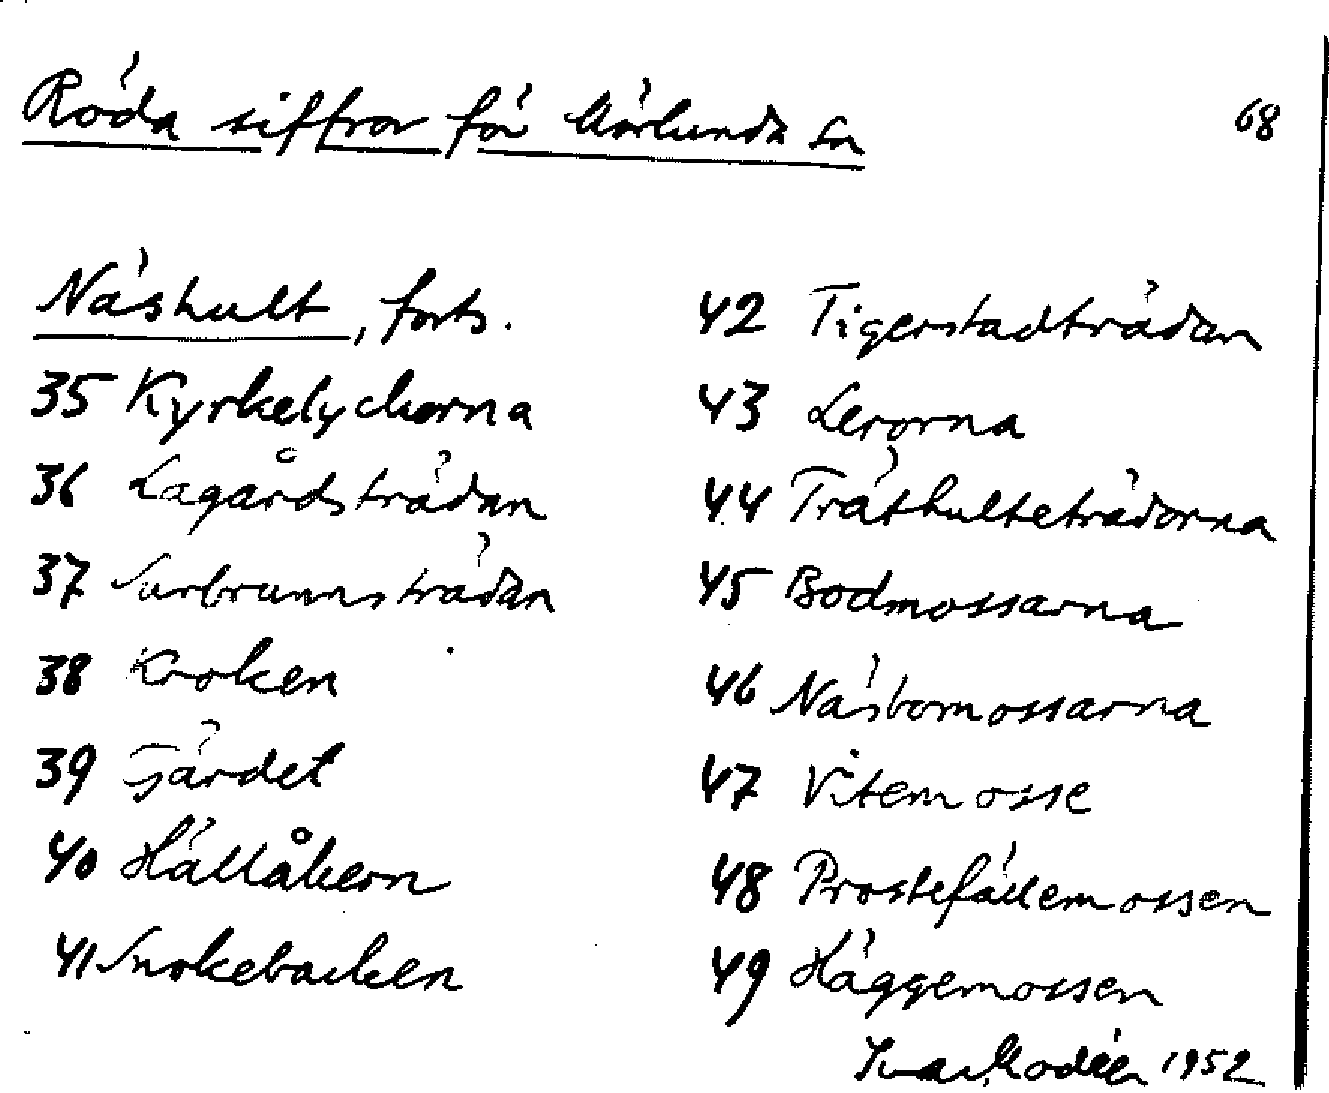 Röda siffror för Mörlunda sn
68
Näshult, forts.
35 Kyrkelyckorna
36 Lagårdsträdan
37 Surbrunnsträdan
38 Kroken
39 Gärdet
40 Hällåkern
41 Snokebacken
42 Tigerstadträdan
43 Lerorna
44 Träthulteträdorna
45 Bodmossarna
46 Näsbomossarna
47 Vitemosse
48 Prostefällemossen
49 Häggemossen
Ivar Modéer 1952